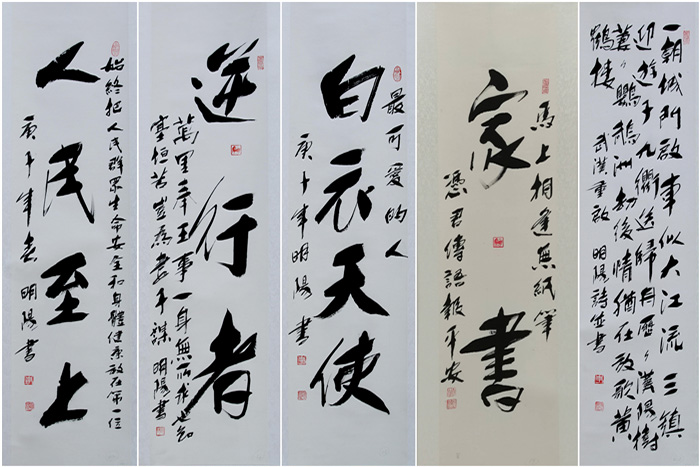 始终把人民群眾生命安全和身體健康放在第一位
人民至上
庚子年春 明陽書
逆行者
萬里奉王事一身無所求也知
塞垣苦豈為妻子謀 明陽書
最可愛的人
白衣天使
庚子年明陽書
馬上相逢無紙筆
家書
憑君傳語報平安
一朝城门啟車似大江流三鎮
迎遊子九衢送歸舟歷々漢陽樹
萋々鸚鵡洲劫後情猶在放歌黄
鶴樓 武漢重啟 明陽詩並書